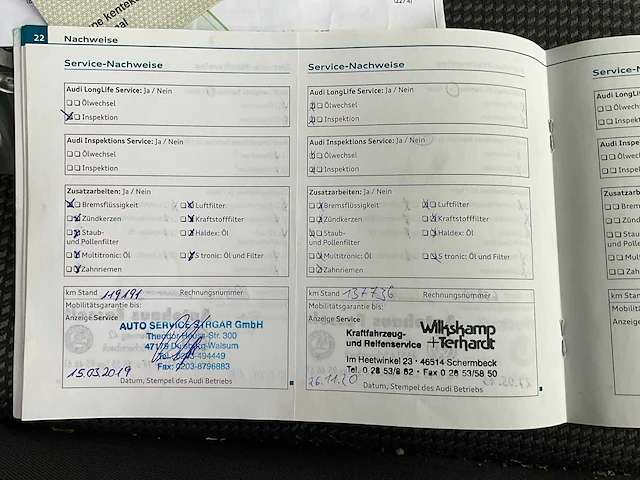 22 Nachweise
Service-Nachweise
Audi LongLife Service: Ja / Nein
Ölwechsel
Inspektion
Audi Inspektions Service: Ja / Nein
Ölwechsel
Inspektion
Zusatzarbeiten: Ja / Nein
Bremsflüssigkeit Luftfilter
Zündkerzen Kraftstofffilter
Staub- Haldex: Öl
und Pollenfilter
Multitronic: Öl S tronic: Öl und Filter
Zahnriemen
km Stand 119191 Rechnungsnummer
Mobilitätsgarantie bis:
Anzeige Service
AUTO SERVICE SYRGAR GmbH
Str. 300
47179 Duisburg-Walsum
Fax: 0203-8796883
15.03.2019
Datum, Stempel des Audi Betriebs
Service-Nachweise
Audi LongLife Service: Ja / Nein
Ölwechsel
Inspektion
Audi Inspektions Service: Ja / Nein
Ölwechsel
Inspektion
Zusatzarbeiten: Ja / Nein
Bremsflüssigkeit Luftfilter
Zündkerzen Kraftstofffilter
Staub- Haldex: Öl
und Pollenfilter
Multitronic: Öl S tronic: Öl und Filter
Zahnriemen
km Stand 137736 Rechnungsnummer
Mobilitätsgarantie bis:
Anzeige Service
Kraftfahrzeug-
und Reifenservice
Wilkskamp
+Terhardt
Im Heetwinkel 23 · 46514 Schermbeck
Tel. 0 28 53/8 82 · Fax 0 28 53/58 50
26.11.20
Datum, Stempel des Audi Betriebs